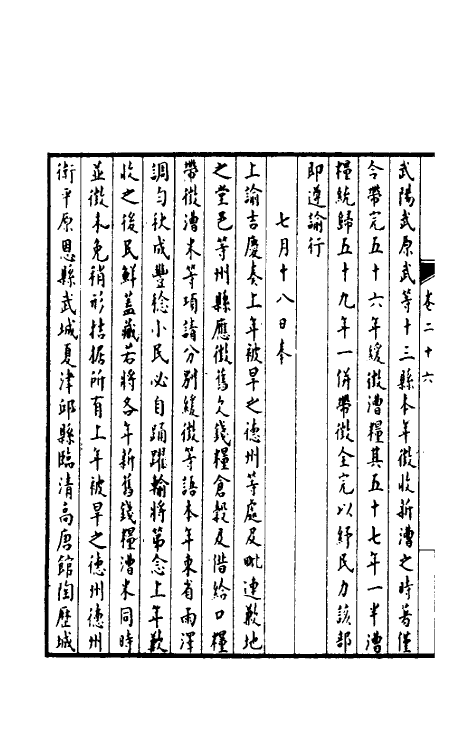 卷二十六
武陽武原武等十三縣本年徵收新漕之時著僅
令帶完五十六年緩徵漕糧其五十七年一半漕
糧統歸五十九年一併帶徵全完以紓民力該部
即遵諭行
七月十八日奉
上諭吉慶奏上年被旱之德州等處及毗連歉地
之堂邑等州縣應徵舊欠錢糧倉穀及借給口糧
帶徵漕米等項請分別緩徵等語本年東省雨澤
調勻秋成豐稔小民必自踴躍輸將第念上年歉
收之後民鮮蓋藏若將各年新舊錢糧漕米同時
並徵未免稍形拮据所有上年被旱之德州德州
衛平原恩縣武城夏津邱縣臨清高唐館陶歷城